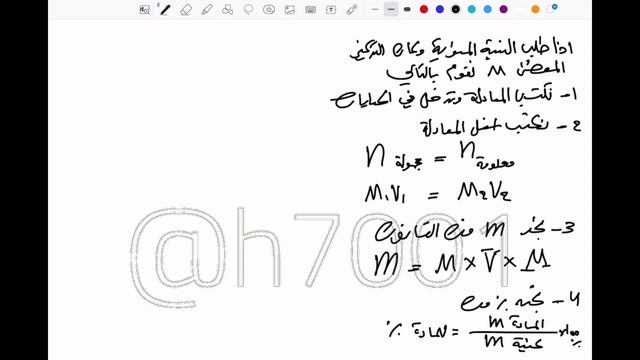 اذا طلب النسبة المئوية وكان التركيز
المعطى M نقوم بالتالي
1- نكتب المعادلة وندخل في الحسابات
2- نكتب اسفل المعادلة
n مجهولة = n معلومة
M₁V₁ = M₂V₂
3- نجد m من القانون
m = M × V × M
4- نجد % من
المادة % = m المادة / m عينة × 100%
@h7001